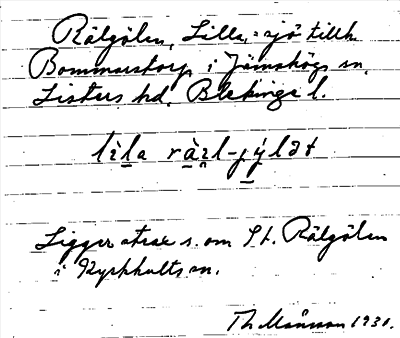 Rälgölen, Lilla, = sjö tillh.
Bommerstorp i Jämshögs sn,
Listers hd. Blekinge l.
lila
Ligger strax s. om St. Rälgölen
i Kyrkhults sn.
Th. Månsson 1931.